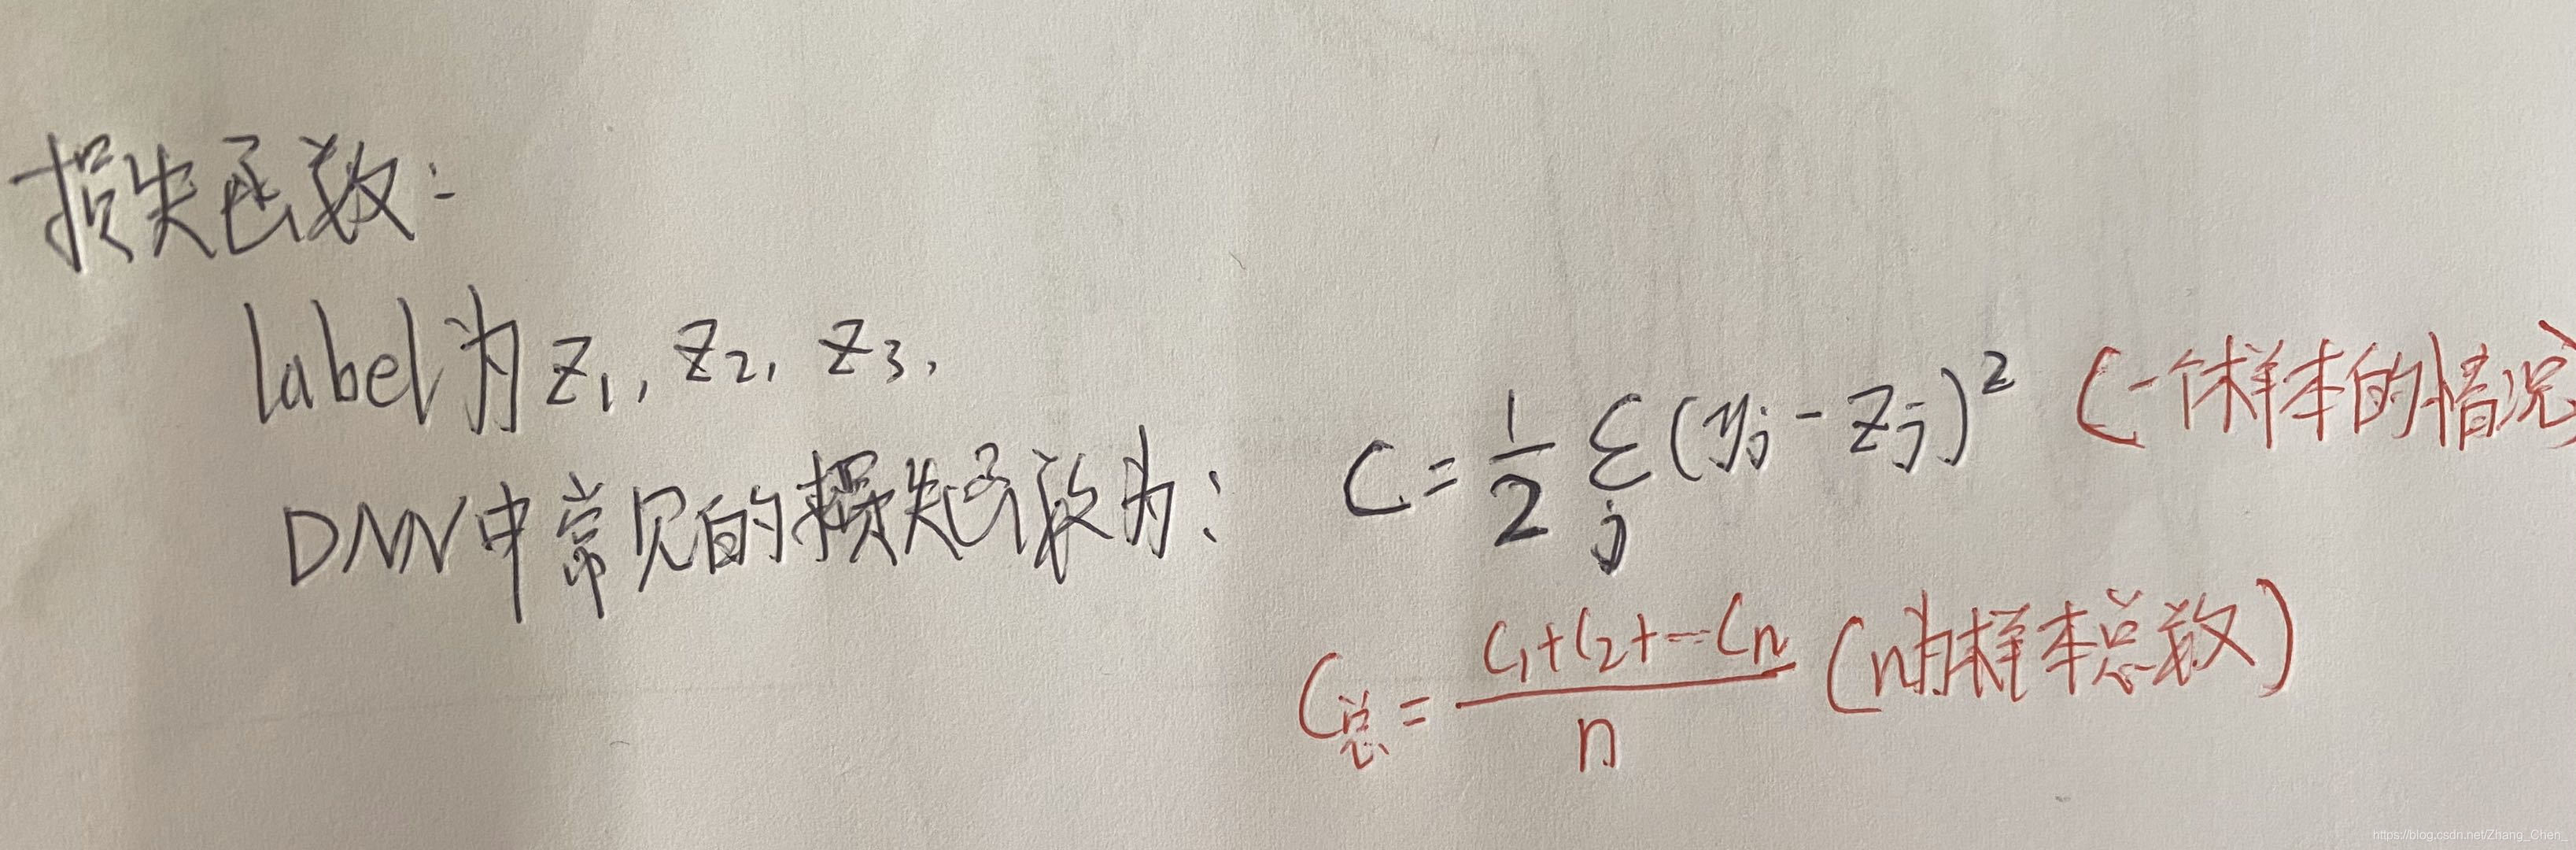 损失函数:
label为 z₁, z₂, z₃,
DNN中常见的损失函数为: C = 1/2 Σ_j (y_j - z_j)² (一个样本的情况)
C总 = (C₁+C₂+…Cn)/n (n为样本总数)
https://blog.csdn.net/Zhang_Chen_